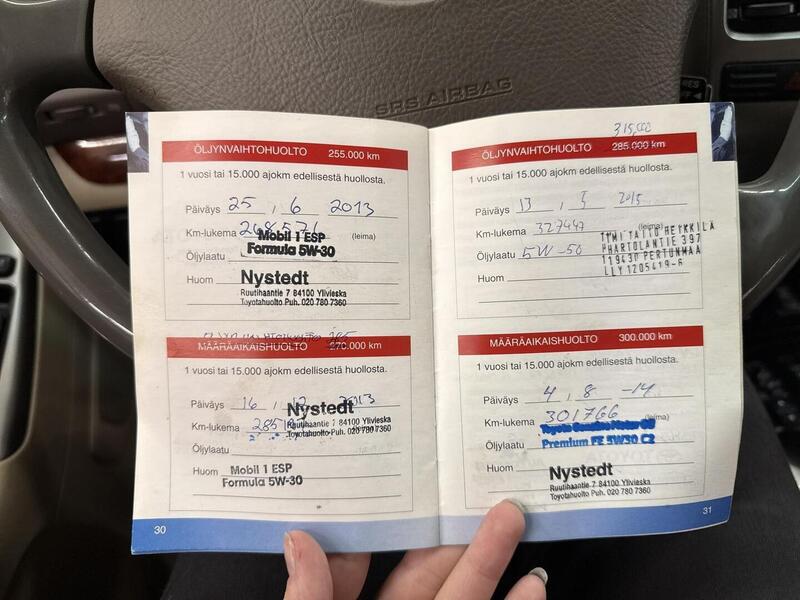 SRS AIRBAG
ÖLJYNVAIHTOHUOLTO 255.000 km
1 vuosi tai 15.000 ajokm edellisestä huollosta.
Päiväys 25 , 6 2013
Km-lukema 268571 (leima)
Mobil 1 ESP
Öljylaatu Formula 5W-30
Huom Nystedt
Ruutihaantie 7 84100 Ylivieska
Toyotahuolto Puh. 020 780 7360
MÄÄRÄAIKAISHUOLTO 270.000 km
1 vuosi tai 15.000 ajokm edellisestä huollosta.
Päiväys 16 , 12 2013
Nystedt
Km-lukema Ruutihaantie 7 84100 Ylivieska
Toyotahuolto Puh. 020 780 7360
Öljylaatu
Huom Mobil 1 ESP
Formula 5W-30
30
315,000
ÖLJYNVAIHTOHUOLTO 285.000 km
1 vuosi tai 15.000 ajokm edellisestä huollosta.
Päiväys 13 , 5 2015
Km-lukema 327447 (leima)
TMI TAITO HEIKKILÄ
Öljylaatu 5W-50
PHARTOLANTIE 397
119430 PERTUNMAA
Huom
LLY 1205419-6
MÄÄRÄAIKAISHUOLTO 300.000 km
1 vuosi tai 15.000 ajokm edellisestä huollosta.
Päiväys 4 , 8 -14
Km-lukema 301766 (leima)
Öljylaatu Premium FE 5W30 C2
Huom Nystedt
Ruutihaantie 7 84100 Ylivieska
Toyotahuolto Puh. 020 780 7360
31